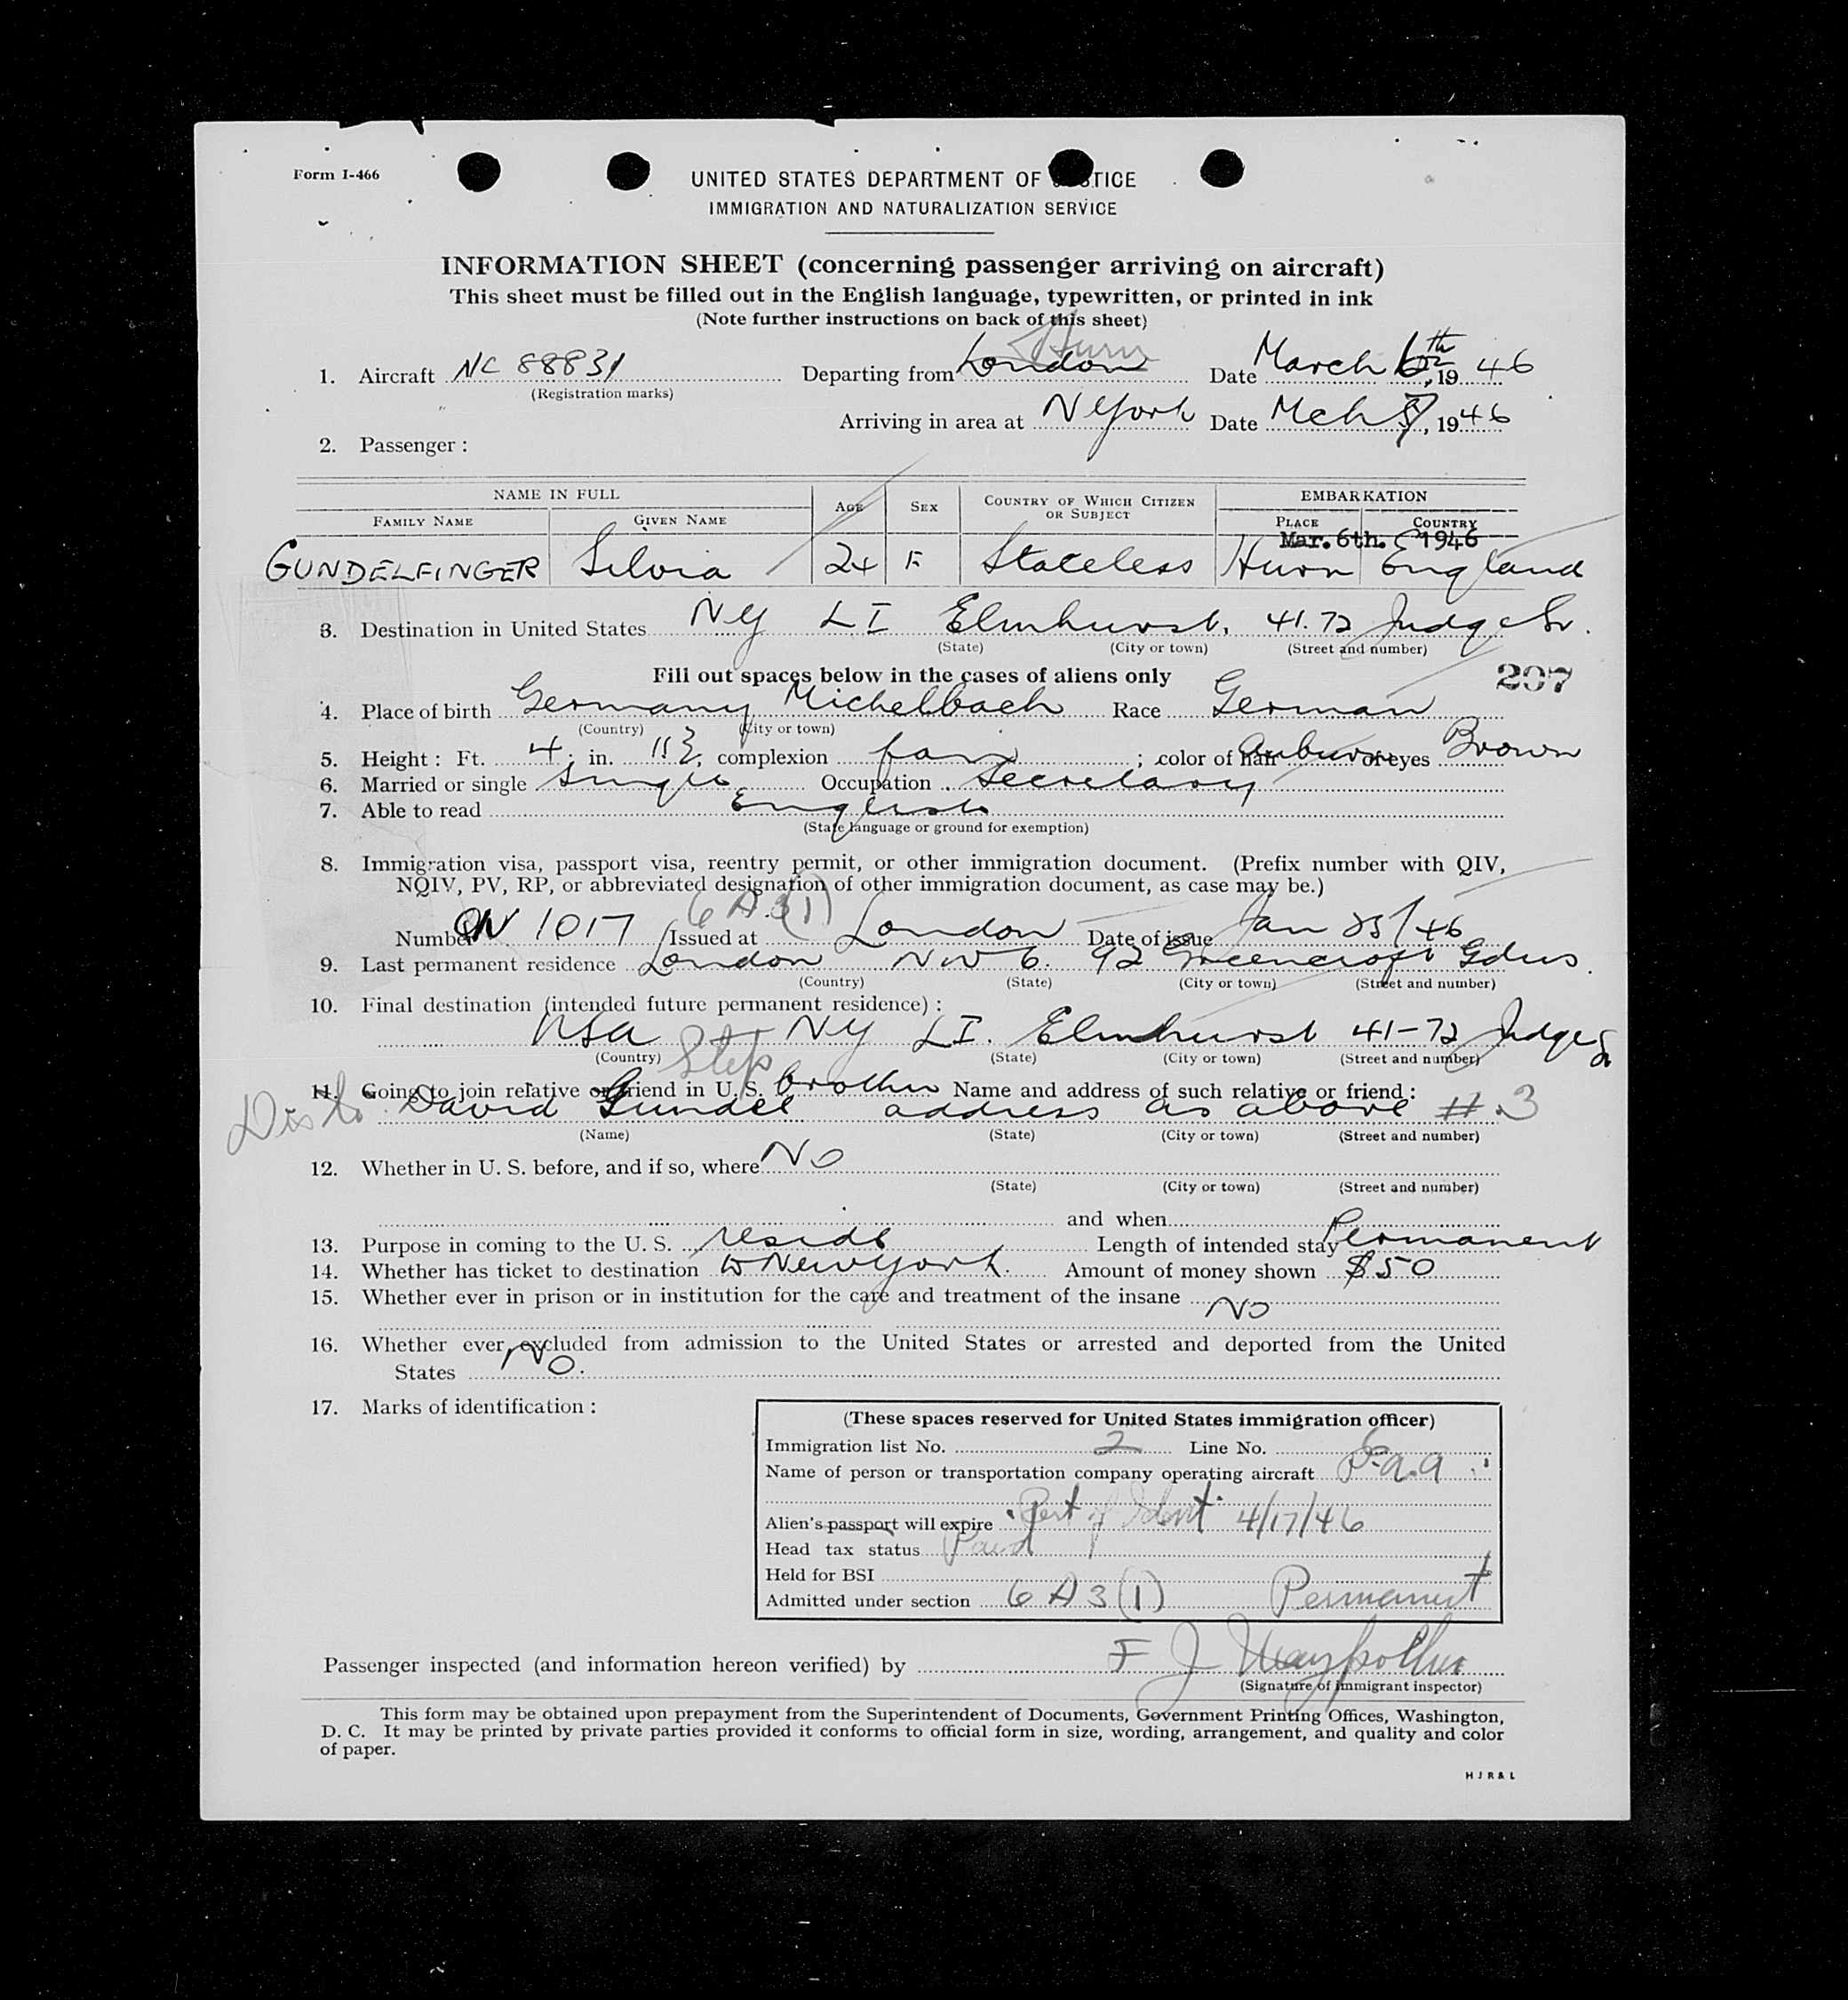 Form I-466
UNITED STATES DEPARTMENT OF JUSTICE
IMMIGRATION AND NATURALIZATION SERVICE
INFORMATION SHEET (concerning passenger arriving on aircraft)
This sheet must be filled out in the English language, typewritten, or printed in ink
(Note further instructions on back of this sheet)
Hurn
1. Aircraft NC 88831 Departing from London Date March 6th, 1946
(Registration marks)
Arriving in area at N York Date Mch 7, 1946
2. Passenger:
NAME IN FULL AGE SEX COUNTRY OF WHICH CITIZEN OR SUBJECT EMBARKATION
FAMILY NAME GIVEN NAME PLACE COUNTRY
Mar. 6th. 1946
GUNDELFINGER Silvia 24 F Stateless Hurn England
3. Destination in United States NY LI Elmhurst. 41.72 Judge Str.
(State) (City or town) (Street and number)
Fill out spaces below in the cases of aliens only
207
4. Place of birth Germany Michelbach Race German
(Country) (City or town)
5. Height: Ft. 4; in. 11½; complexion fair; color of hair auburn of eyes Brown
6. Married or single Single Occupation Secretary
7. Able to read English
(State language or ground for exemption)
8. Immigration visa, passport visa, reentry permit, or other immigration document. (Prefix number with QIV,
NQIV, PV, RP, or abbreviated designation of other immigration document, as case may be.)
6 A 3(1)
Number 1017 Issued at London Date of issue Jan 25/46
9. Last permanent residence London NW 6. 92 Greencroft Gdns.
(Country) (State) (City or town) (Street and number)
10. Final destination (intended future permanent residence):
USA NY LI. Elmhurst 41-72 Judge St
(Country) (State) (City or town) (Street and number)
Step
11. Going to join relative or friend in U. S. brother Name and address of such relative or friend:
David Gundel address as above #.3
(Name) (State) (City or town) (Street and number)
12. Whether in U. S. before, and if so, where No
(State) (City or town) (Street and number)
and when
13. Purpose in coming to the U. S. reside Length of intended stay Permanent
14. Whether has ticket to destination to New York. Amount of money shown $50
15. Whether ever in prison or in institution for the care and treatment of the insane No
16. Whether ever excluded from admission to the United States or arrested and deported from the United
States No.
17. Marks of identification:
(These spaces reserved for United States immigration officer)
Immigration list No. 2 Line No. 6
Name of person or transportation company operating aircraft P.a.a
Alien's passport will expire Cert of Ident. 4/17/46
Head tax status Paid
Held for BSI
Admitted under section 6 A 3 (1) Permanent
Passenger inspected (and information hereon verified) by F J
(Signature of immigrant inspector)
This form may be obtained upon prepayment from the Superintendent of Documents, Government Printing Offices, Washington,
D. C. It may be printed by private parties provided it conforms to official form in size, wording, arrangement, and quality and color
of paper.
H J R & L